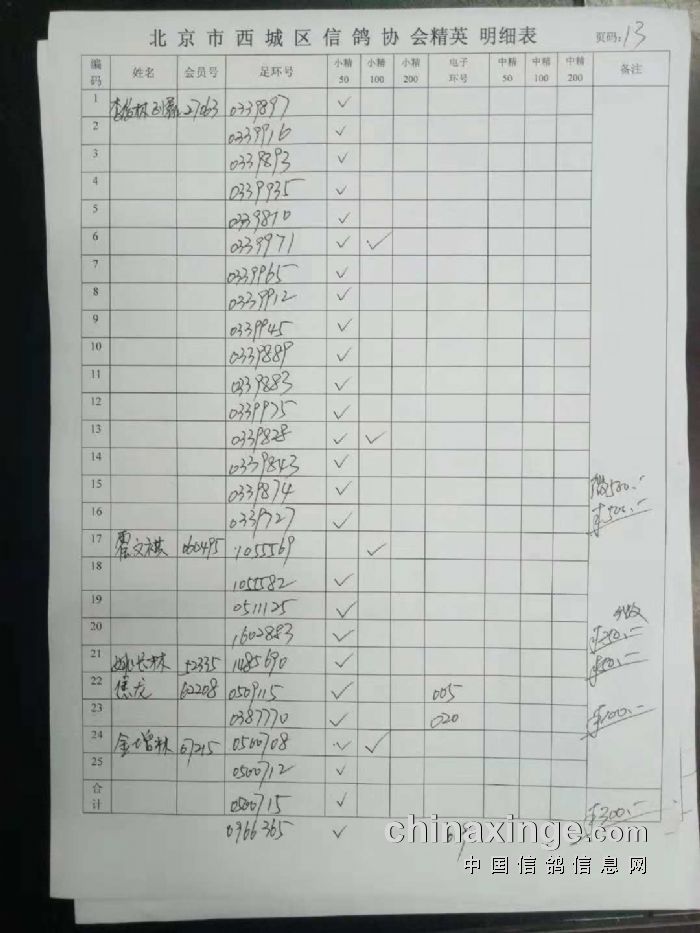 北京市西城区信鸽协会精英 明细表 页码: 13
编码 姓名 会员号 足环号 小精50 小精100 小精200 电子环号 中精50 中精100 中精200 备注
1 27063 0339897 ✓
2 0339916 ✓
3 0339893 ✓
4 0339935 ✓
5 0339810 ✓
6 0339971 ✓ ✓
7 0339965 ✓
8 0339912 ✓
9 0339945 ✓
10 0339889 ✓
11 0339883 ✓
12 0339975 ✓
13 0339828 ✓ ✓
14 0339843 ✓
15 0339874 ✓ 500.-
16 0339727 ✓ 500.-
17 霍文祺 060495 1055569 ✓
18 1055582 ✓
19 0511125 ✓
20 1602883 ✓
21 52335 1485690 ✓
22 焦龙 62208 0509115 ✓ 005
23 0387770 ✓ 020
24 金增林 67215 0500708 ✓ ✓
25 0500712 ✓
合计 0500715 ✓ 300.-
0966365 ✓
chinaxinge.com
中国信鸽信息网